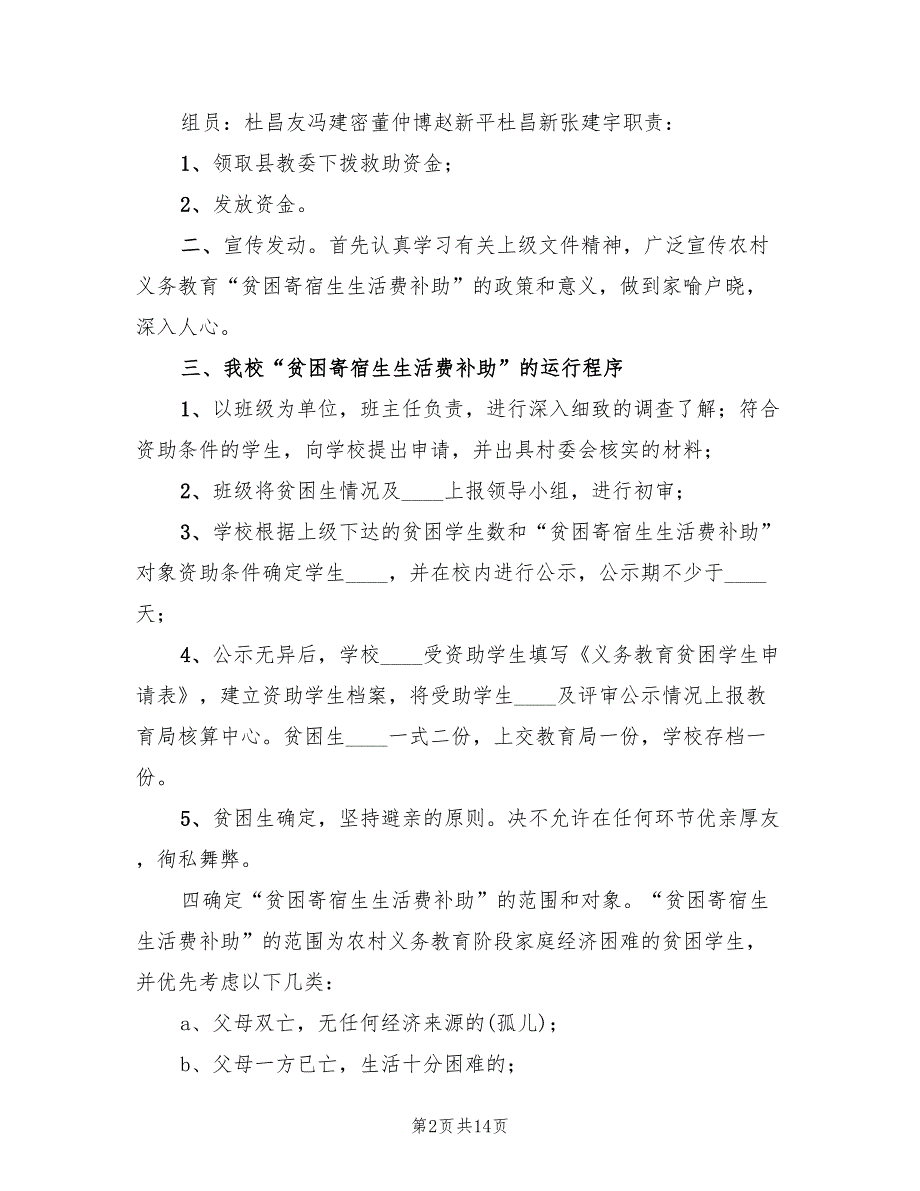 组员：杜昌友冯建密董仲博赵新平杜昌新张建宇职责：
1、领取县教委下拨救助资金；
2、发放资金。
二、宣传发动。首先认真学习有关上级文件精神，广泛宣传农村
义务教育“贫困寄宿生生活费补助”的政策和意义，做到家喻户晓，
深入人心。
三、我校“贫困寄宿生生活费补助”的运行程序
1、以班级为单位，班主任负责，进行深入细致的调查了解；符合
资助条件的学生，向学校提出申请，并出具村委会核实的材料；
2、班级将贫困生情况及____上报领导小组，进行初审；
3、学校根据上级下达的贫困学生数和“贫困寄宿生生活费补助”
对象资助条件确定学生____，并在校内进行公示，公示期不少于____
天；
4、公示无异后，学校____受资助学生填写《义务教育贫困学生申
请表》，建立资助学生档案，将受助学生____及评审公示情况上报教
育局核算中心。贫困生____一式二份，上交教育局一份，学校存档一
份。
5、贫困生确定，坚持避亲的原则。决不允许在任何环节优亲厚友
，徇私舞弊。
四确定“贫困寄宿生生活费补助”的范围和对象。“贫困寄宿生
生活费补助”的范围为农村义务教育阶段家庭经济困难的贫困学生，
并优先考虑以下几类：
a、父母双亡，无任何经济来源的(孤儿)；
b、父母一方已亡，生活十分困难的；
第2页共14页